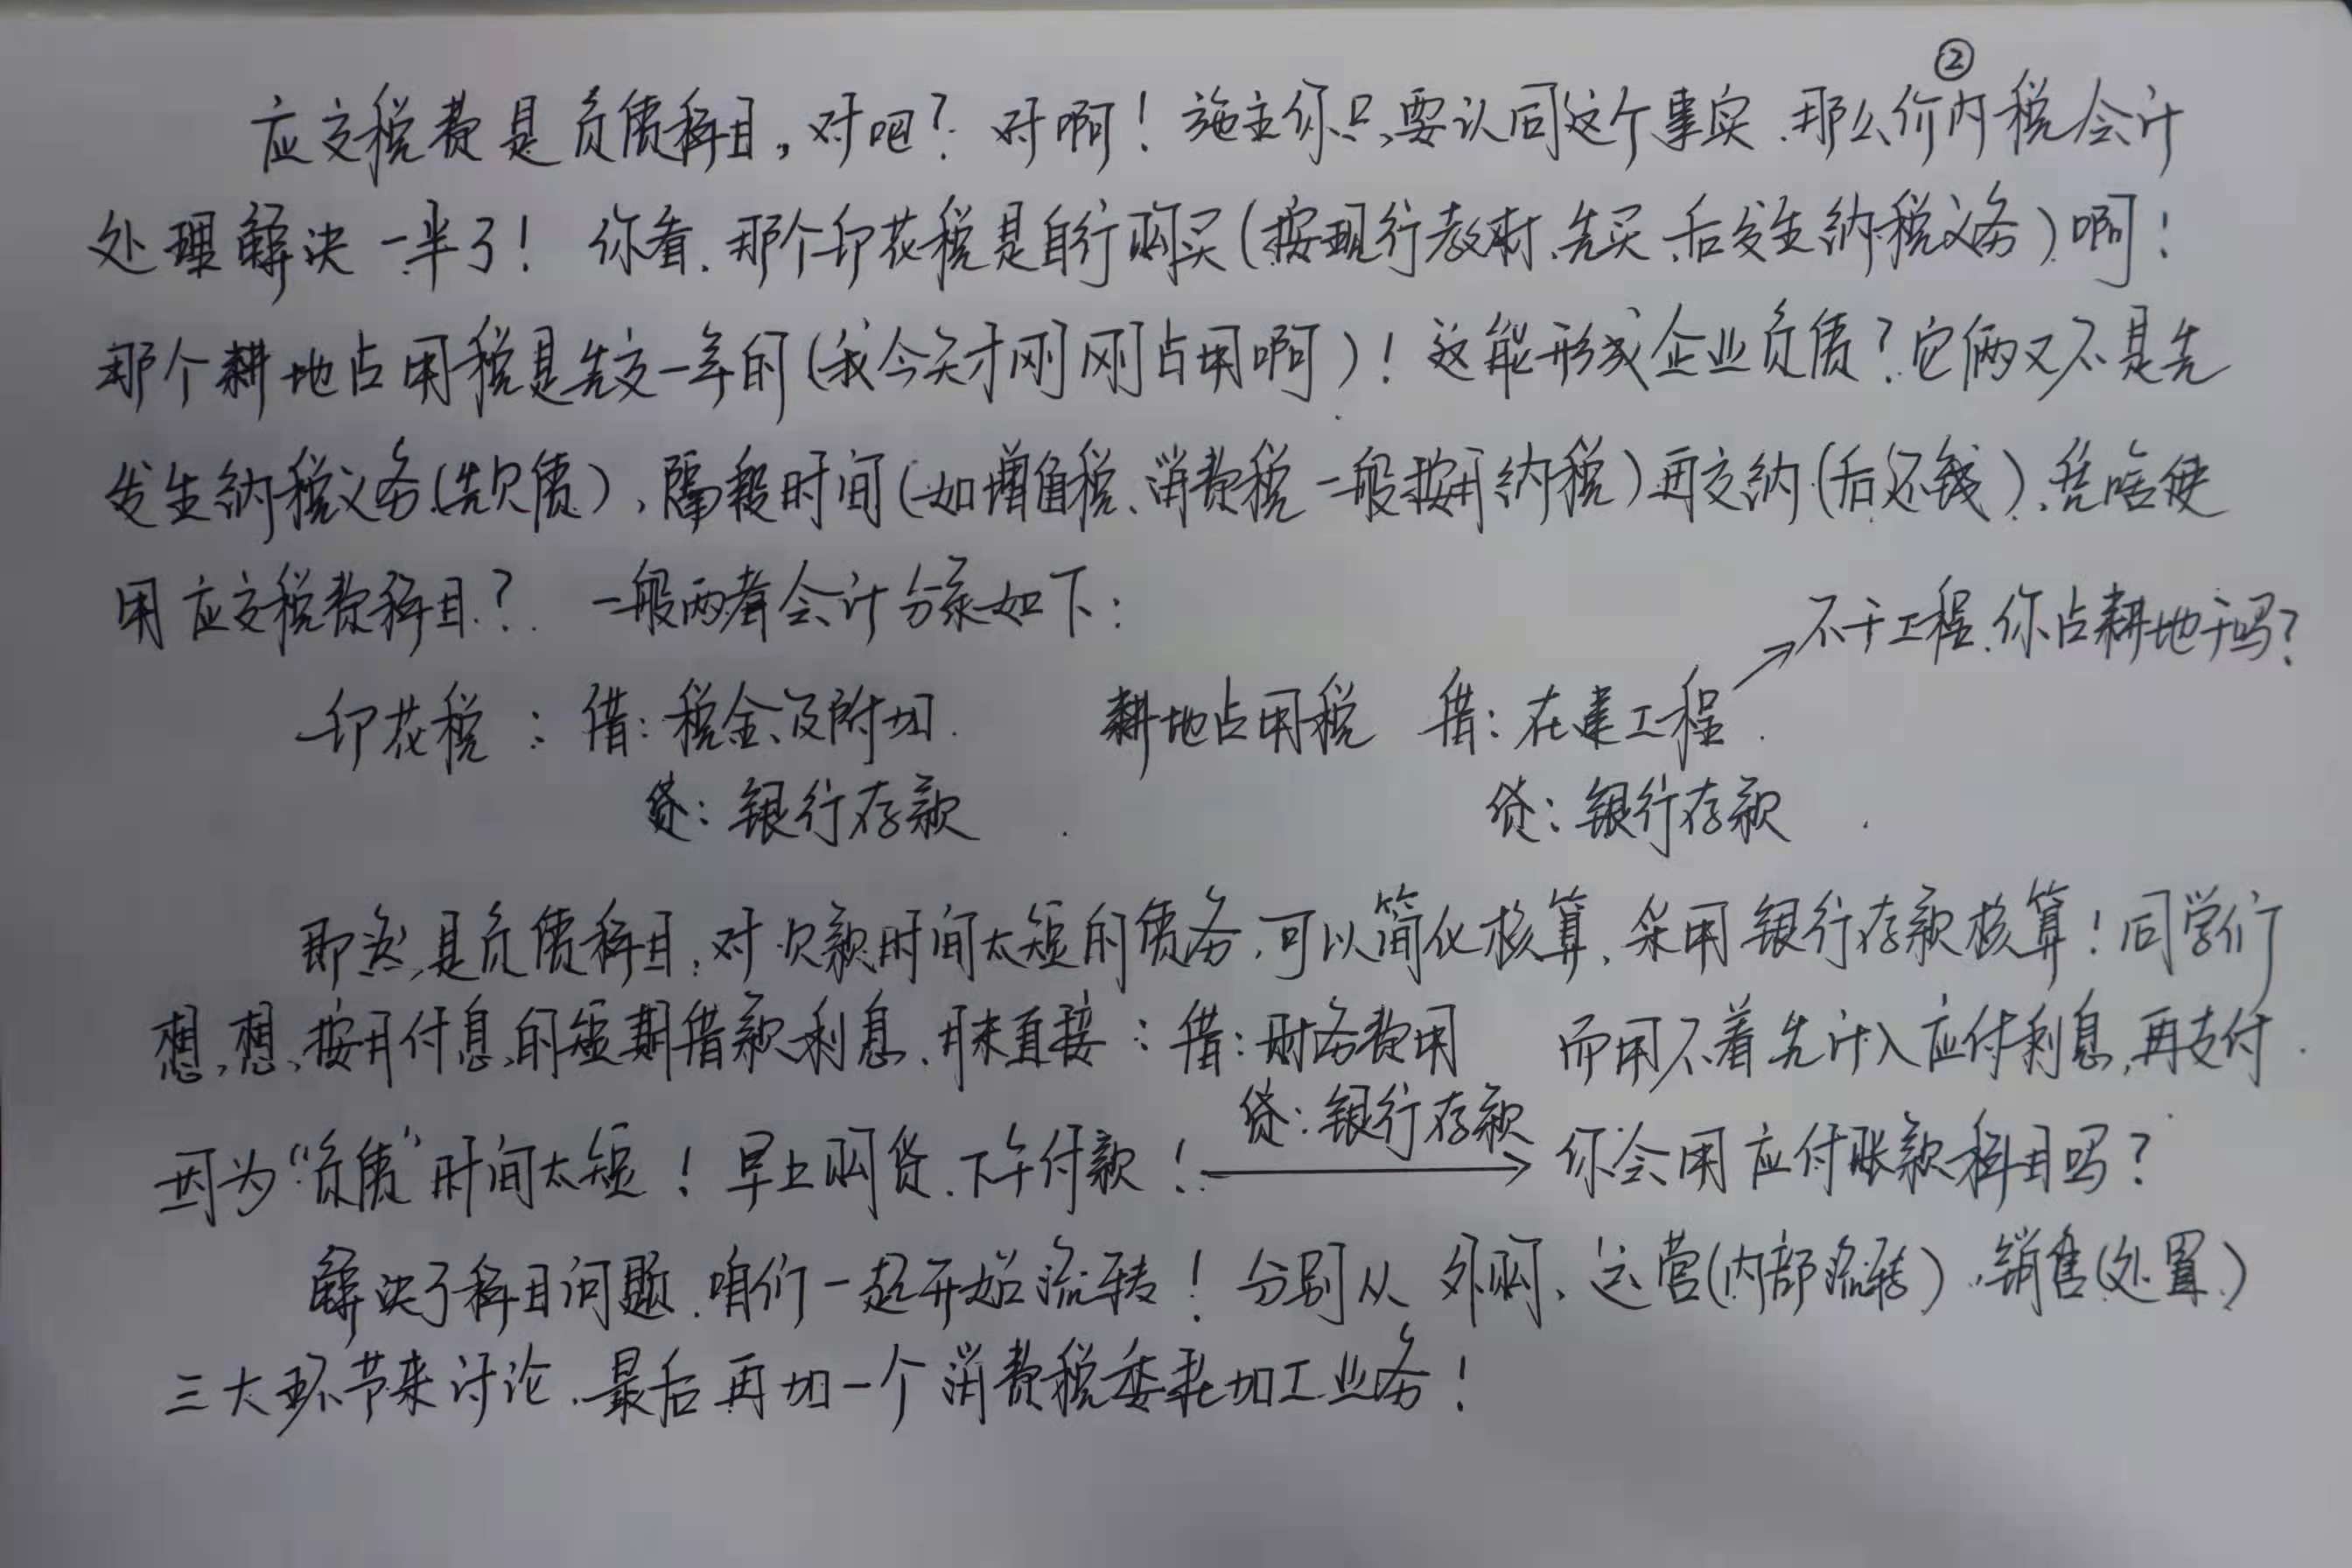 ②
应交税费是负债科目,对吧?对啊!施主你只要认同这个事实、那么价内税会计
处理解决一半了!你看、那个印花税是自行购买(按现行教材、先买、后发生纳税义务)啊!
那个耕地占用税是先交一年的(我今天才刚刚占用啊)!这能形成企业负债?它俩又不是先
发生纳税义务(先欠债)、隔段时间(如增值税、消费税一般按月纳税)再交纳(后还钱)、凭啥使
用应交税费科目?一般两者会计分录如下:
不干工程、你占耕地干吗?
印花税:借:税金及附加 耕地占用税 借:在建工程
贷:银行存款 贷:银行存款
即然是负债科目,对欠款时间太短的债务、可以简化核算、采用银行存款核算!同学们
想,想、按月付息的短期借款利息、月末直接:借:财务费用 而用不着先计入应付利息,再支付.
贷:银行存款
因为“负债”时间太短!早上购货、下午付款!→你会用应付账款科目吗?
解决了科目问题、咱们一起开始流转!分别从 外购、运营(内部流转)、销售(处置)
三大环节来讨论、最后再加一个消费税委托加工业务!